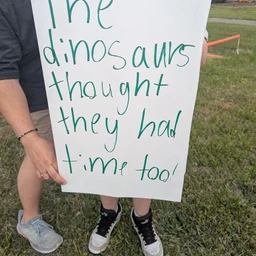 The
dinosaurs
thought
they had
time too!